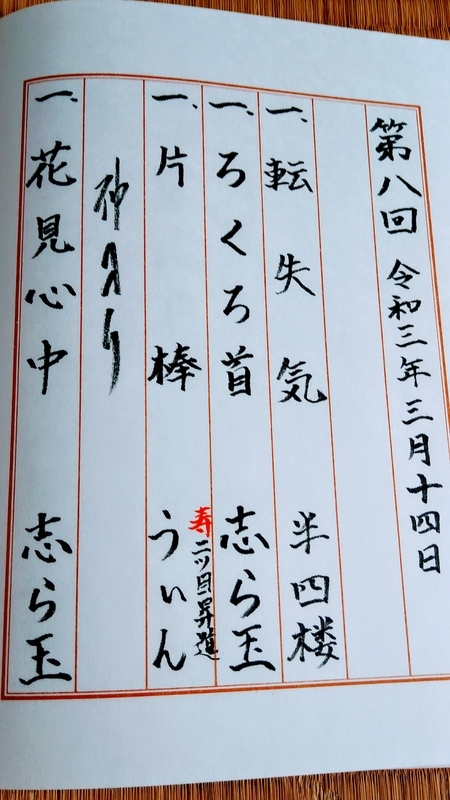 第八回 令和三年三月十四日
一、転失気 半四楼
一、ろくろ首 志ら玉
寿 二ツ目昇進
一、片棒 うぃん
仲入り
一、花見心中 志ら玉